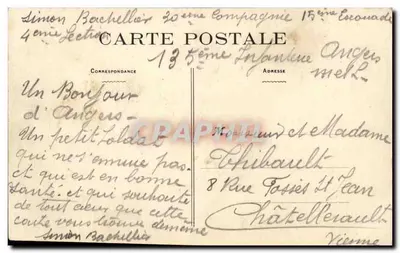 Simon Bachellier 20ème Compagnie 15ème Escouade
4ème Section
CARTE POSTALE
135ème Infanterie Angers
CORRESPONDANCE
ADRESSE
Un Bonjour
d'Angers-
Un petit soldat
qui ne s'ennuie pas-
et qui est en bonne
santé-et qui souhaite
de tout cœur que cette
carte vous trouve de même
Simon Bachellier
Monsieur et Madame
Thibault
8 Rue Fossés St Jean
Châtellerault
Vienne